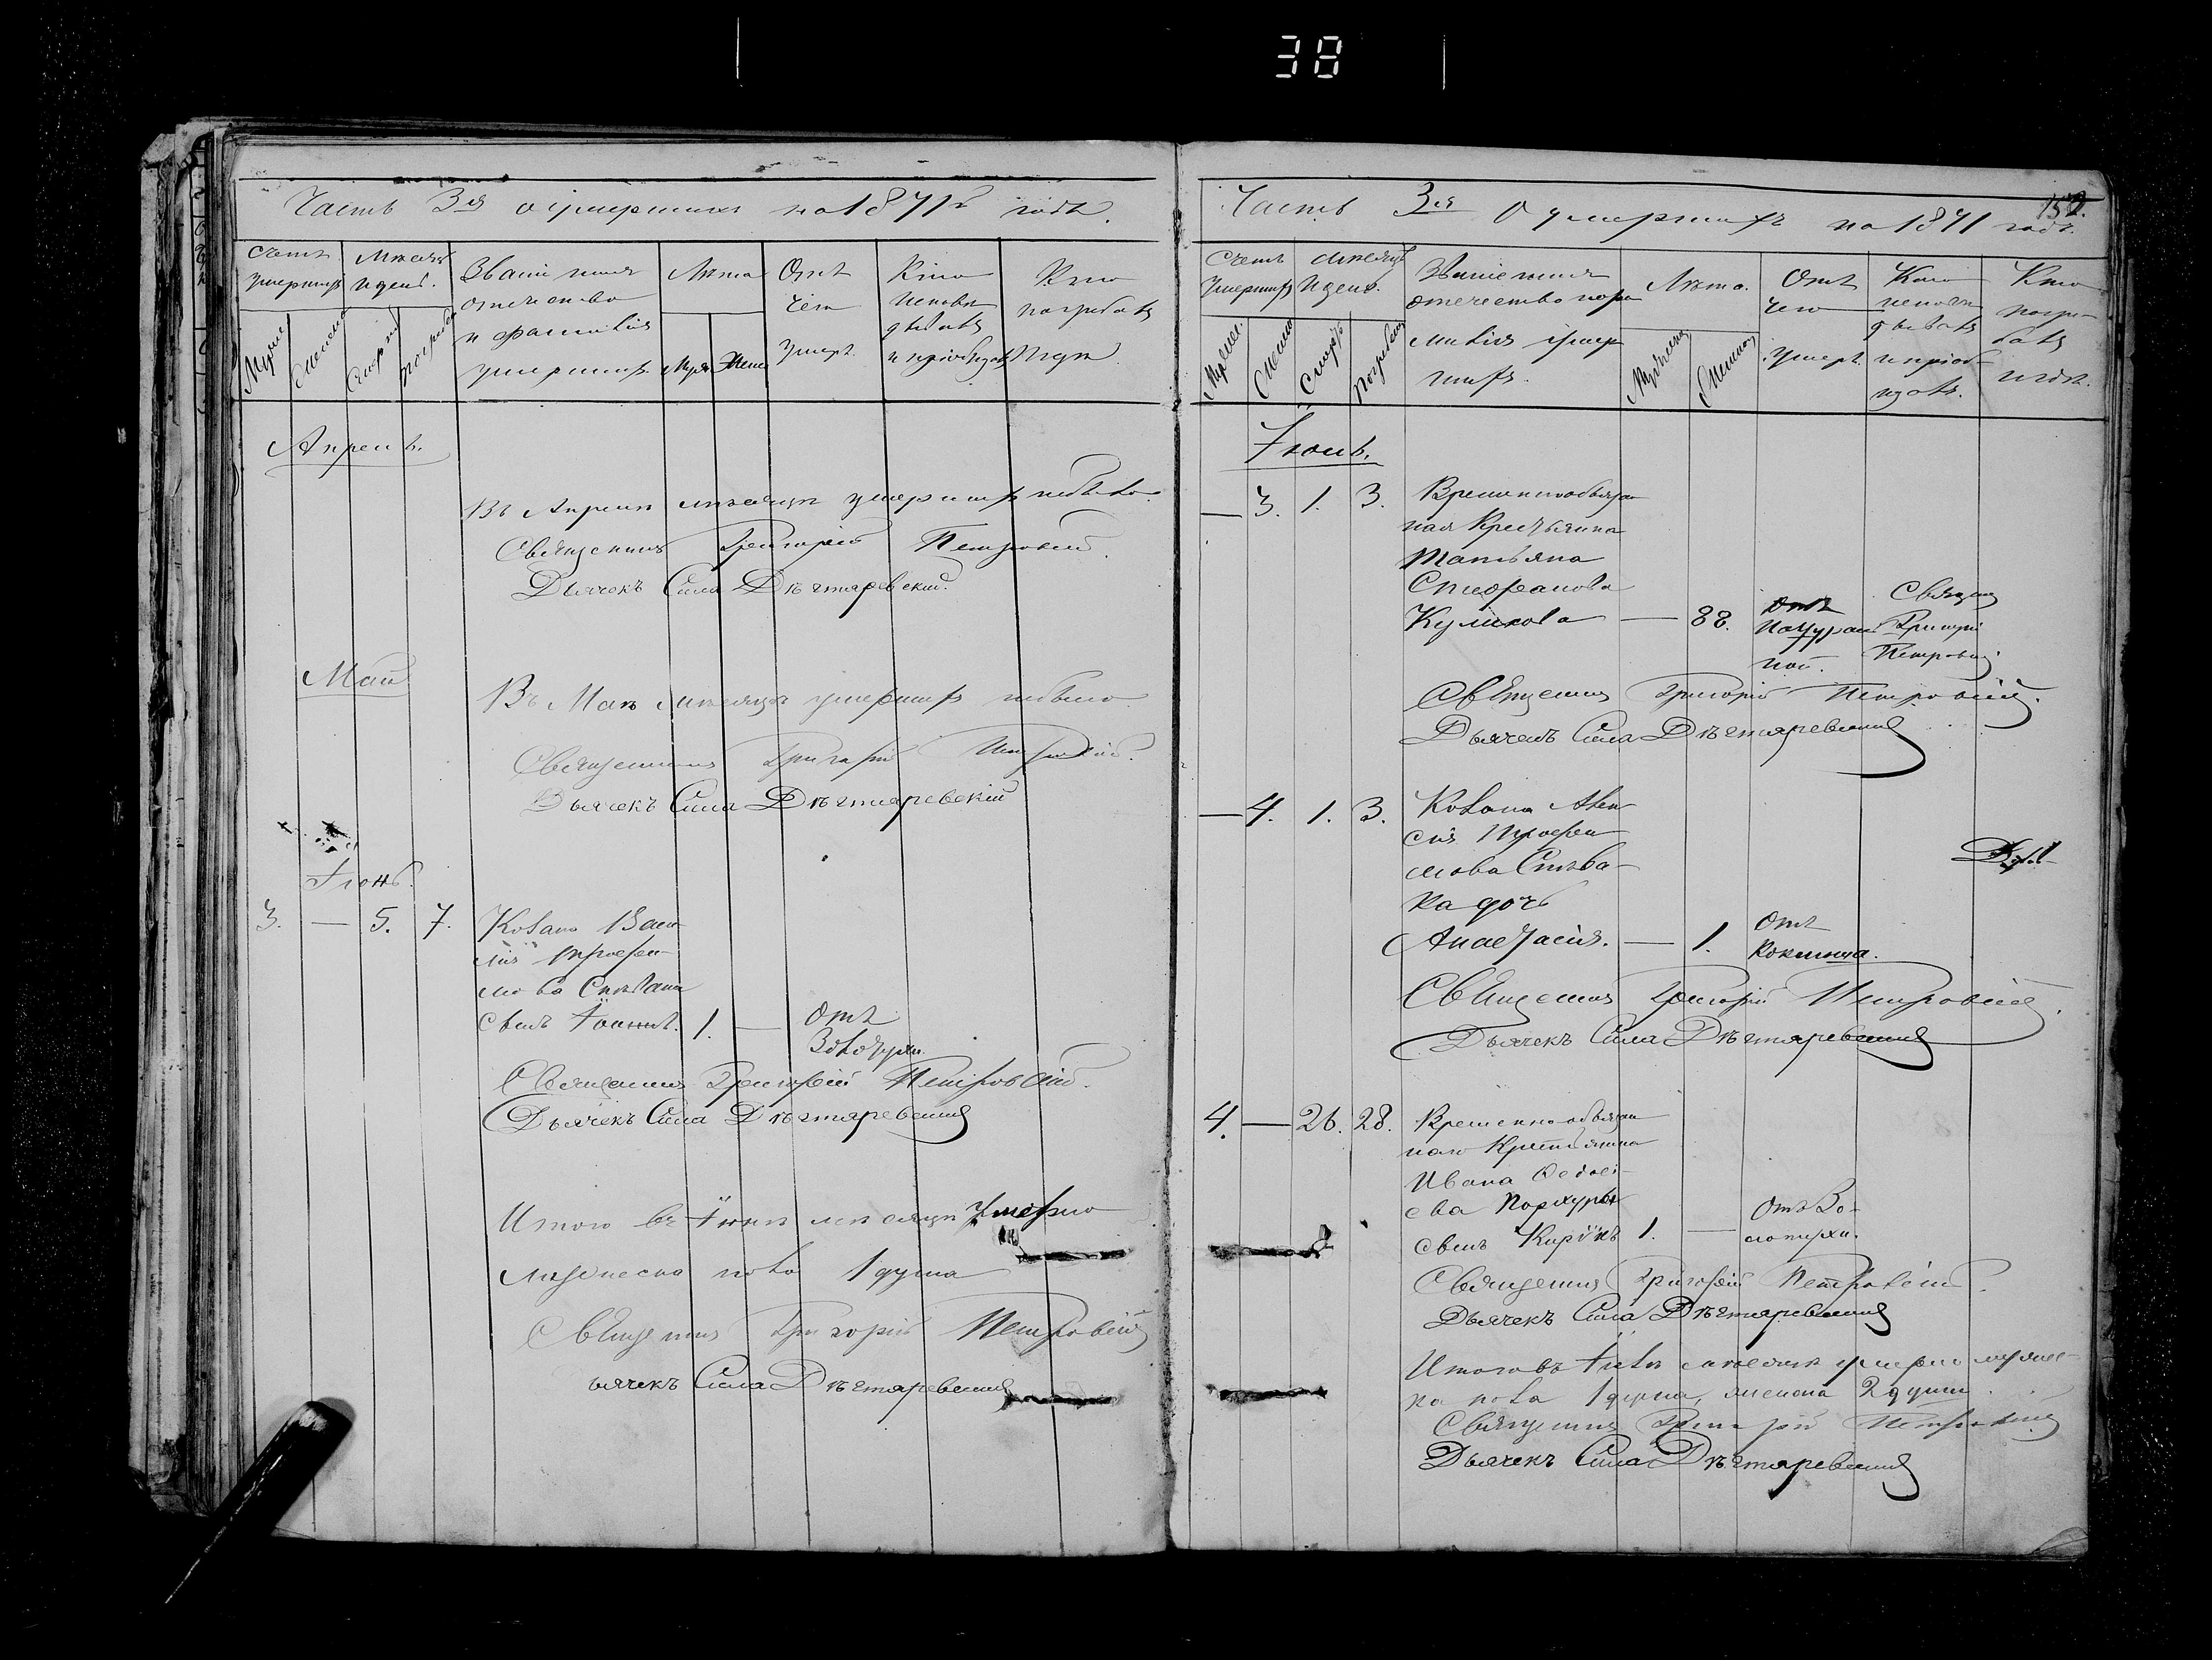 38
Часть 3я о умершихъ на 1871й годъ.
Счетъ умершихъ
Мѣсяцъ и день.
Званіе имя
отечество
и фамилія
умершихъ
Лѣта
Отъ
чего
умеръ
Кто
исповѣ
дывалъ
и пріобщалъ
Кто
погребалъ
и гдѣ
Апрель.
Въ Апрелѣ мѣсяцѣ умершихъ небыло.
Священникъ Григорій Петровскій.
Дьячекъ Сила Дѣгтяревскій.
Май
Въ Маѣ мѣсяцѣ умершихъ небыло
Священникъ Григорій
Дьячекъ Сила Дѣгтяревскій
Іюнь.
3. — 5. 7.
сынъ Іоаннъ. 1. — Отъ
Священникъ Григорій Петровскій.
Дьячекъ Сила Дѣгтяревскій
Итого въ Іюнѣ мѣсяцѣ умерло
мужеска пола 1 душа
Священникъ Григорій Петровскій
ьячекъ Сила Дѣгтяревскій
Часть 3я О умершихъ на 1871 годъ.
Счетъ умершихъ
Мѣсяцъ и день.
Званіе имя
отечество и фа
милія умер
шихъ.
Лѣта.
Отъ
чего
умеръ.
Кто
исповѣ
дывалъ
и пріоб
щалъ.
Кто
погре-
балъ
и гдѣ.
Іюль.
— 3. 1. 3. Временнообязан
ная Крестьянка
Татьяна
Стефанова
Куликова — 88. Священ
Григорій
Петровскій
Священникъ Григорій Петровскій.
Дьячекъ Сила Дѣгтяревскій
— 4. 1. 3.
дочь
Анастасія. — 1. Отъ
коклюша.
Священникъ Григорій Петровскій.
Дьячекъ Сила Дѣгтяревскій
4. — 26. 28. Временнообязан
наго Крестьянина
Ивана
сынъ Кирикъ 1. — Отъ Зо-
лотухи.
Священникъ Григорій Петровскій.
Дьячекъ Сила Дѣгтяревскій
Итого въ Іюлѣ мѣсяцѣ умерло мужес-
ка пола 1 душа, женска 2 души.
Священникъ Григорій Петровскій
Дьячекъ Сила Дѣгтяревскій